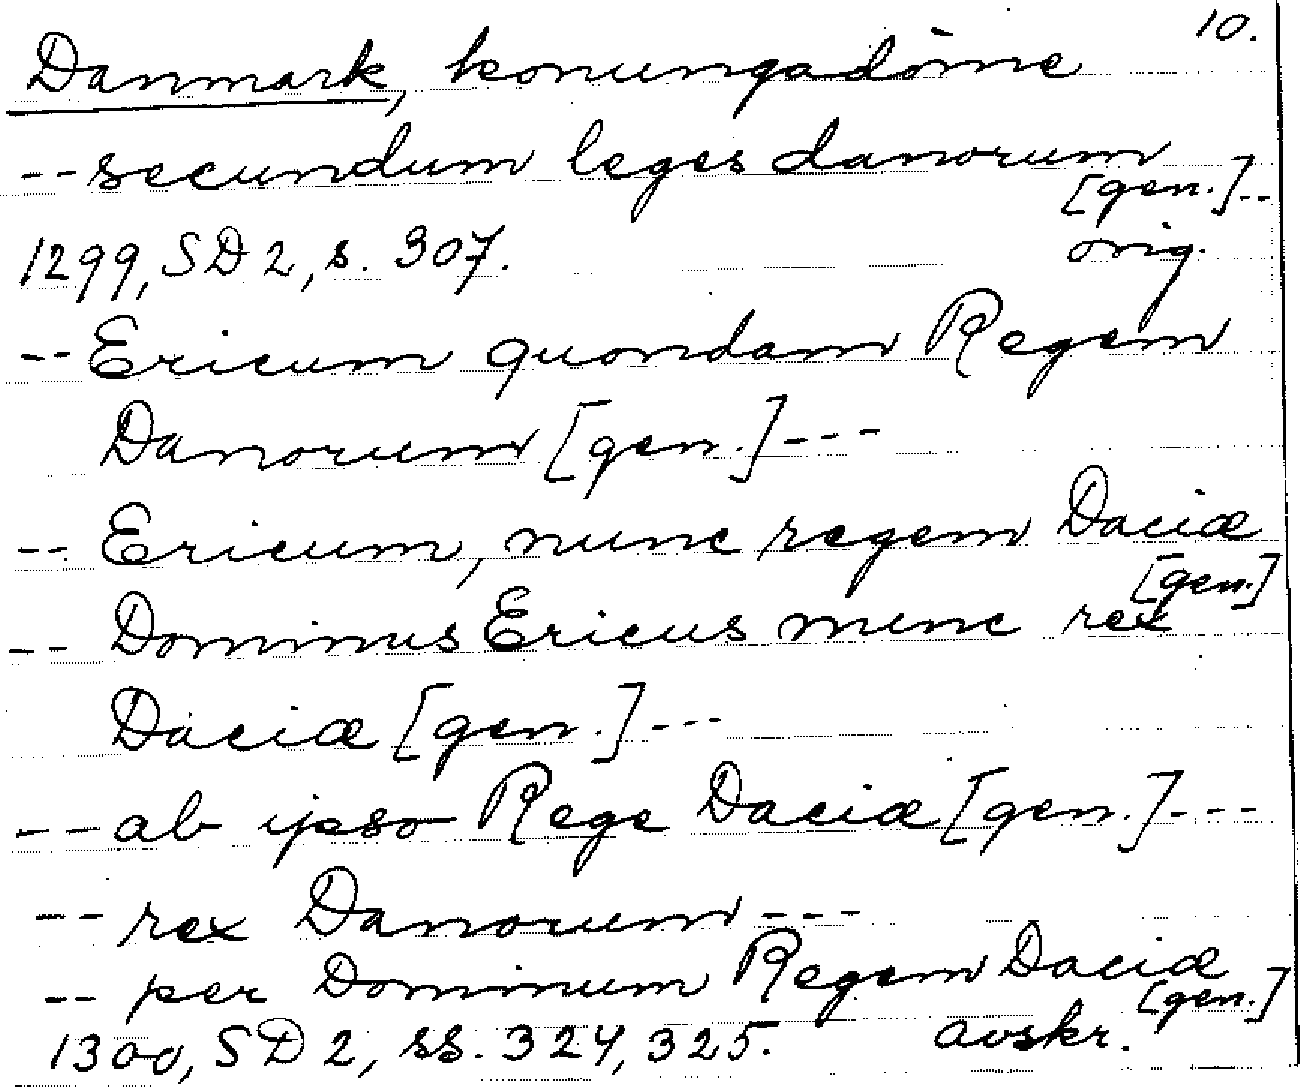 10.
Danmark, konungadöme
-- secundum leges danorum
[gen.]--
1299, SD 2, s. 307. orig.
-- Ericum quondam Regem
Danorum [gen.] ---
-- Ericum, nunc regem Daciæ
[gen.]
-- Dominus Ericus nunc rex
Daciæ [gen.] ---
-- ab ipso Rege Daciæ [gen.] ---
-- rex Danorum ---
-- per Dominum Regem Daciæ
[gen.]
1300, SD 2, ss. 324, 325. avskr.